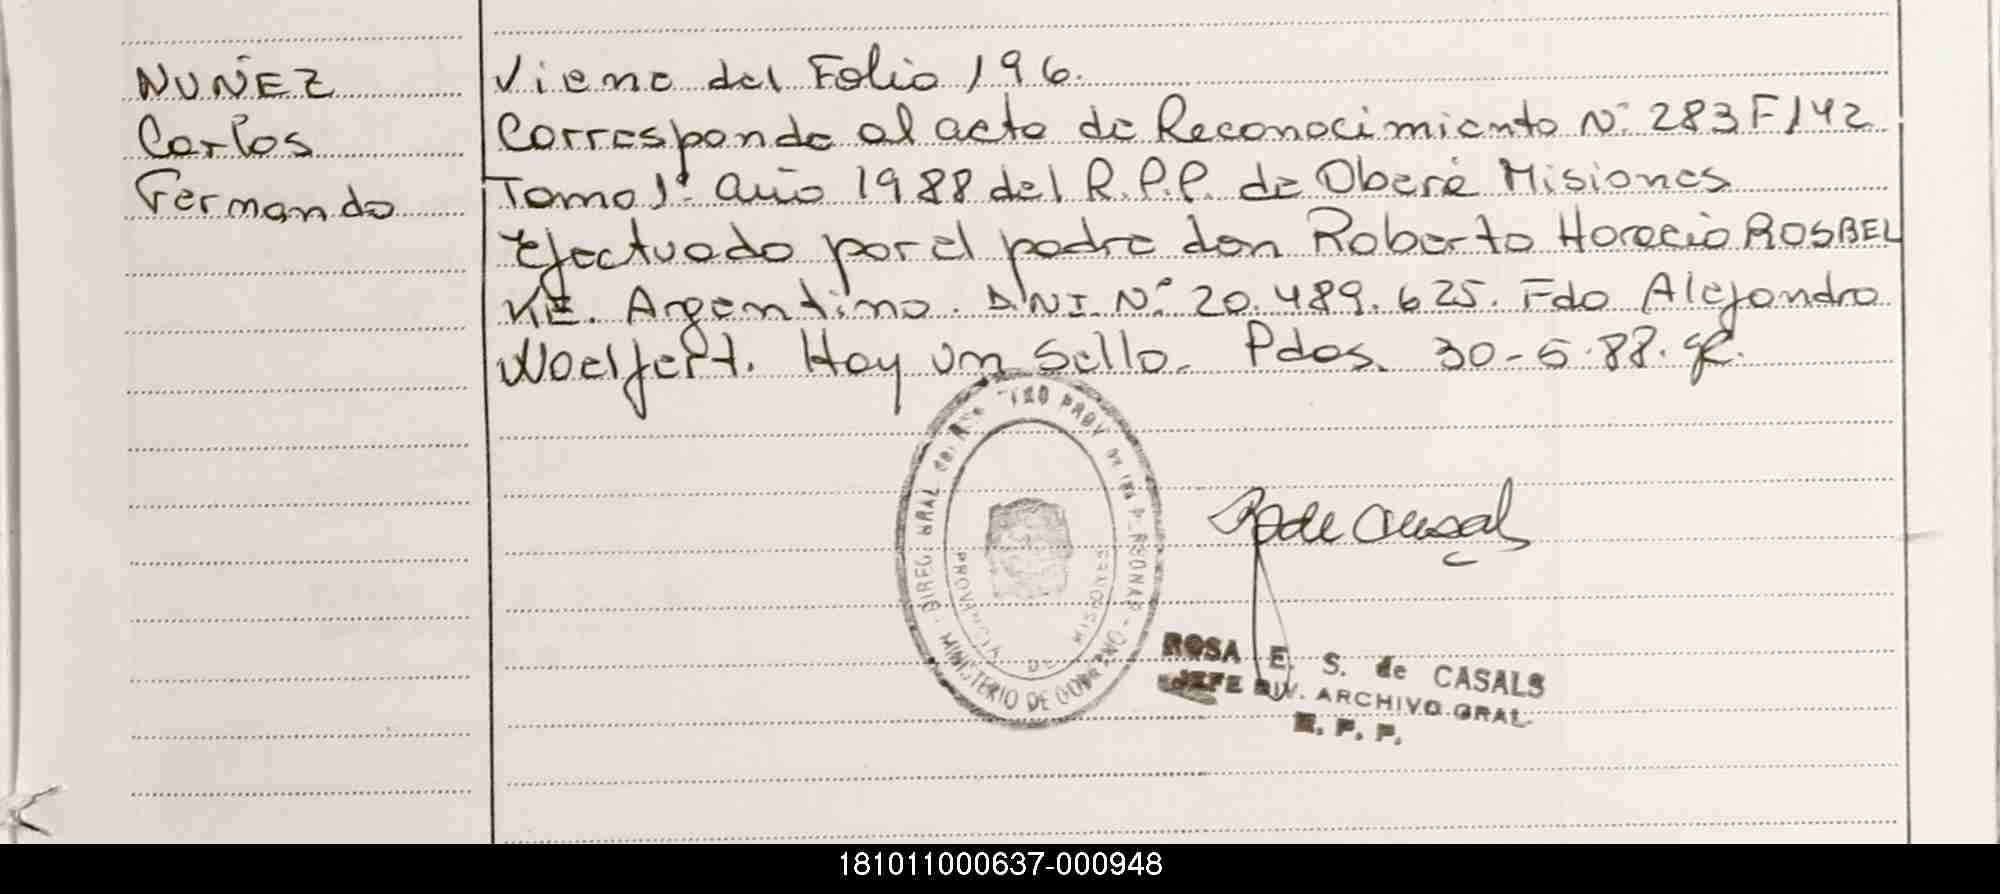 NUÑEZ
Carlos
Fernando
Viene del Folio 196.
Corresponde al acta de Reconocimiento N° 283 F 142
Tomo 1° año 1988 del R.P.P. de Oberá Misiones
efectuado por el padre don Roberto Horacio ROSBEL
KE. Argentino. D.N.I. N° 20.489.625. Fdo Alejandro
Woelfert. Hay un Sello. Pdas. 30-5-88.
DIREC. GRAL DEL PROV DE LAS PERSONAS
MINISTERIO DE GOBIERNO
PROVINCIA DE MISIONES
R de Casals
ROSA E. S. de CASALS
JEFE DIV. ARCHIVO GRAL.
R. P. P.
181011000637-000948